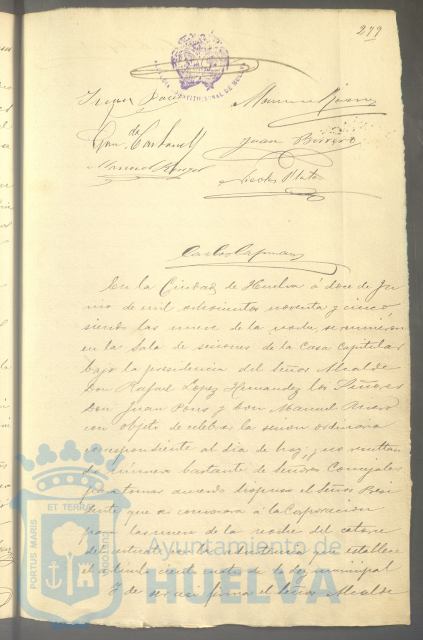 279
Juan Borrero
Carlos Capman
En la Ciudad de Huelva á doce de Ju
nio de mil ochocientos noventa y cinco
siendo las nueve de la noche, se reunieron
en la Sala de sesiones de la Casa Capitular
bajo la presidencia del Señor Alcalde
Don Rafael Lopez Hernandez los Señores
Don Juan Pons y Don Manuel
con objeto de celebrar la sesion ordinaria
correspondiente al dia de hoy, y no resultan
do número bastante de Señores Concejales
para tomar acuerdo dispuso el Señor Presi
dente que se convocara á la Corporacion
para las nueve de la noche del catorce
del actual con la advertencia que establece
el artículo ciento cuatro de la ley municipal
Y de ser así firma el Señor Alcalde
PORTUS MARIS
ET TERRÆ
CUSTODIA
Ayuntamiento de
HUELVA